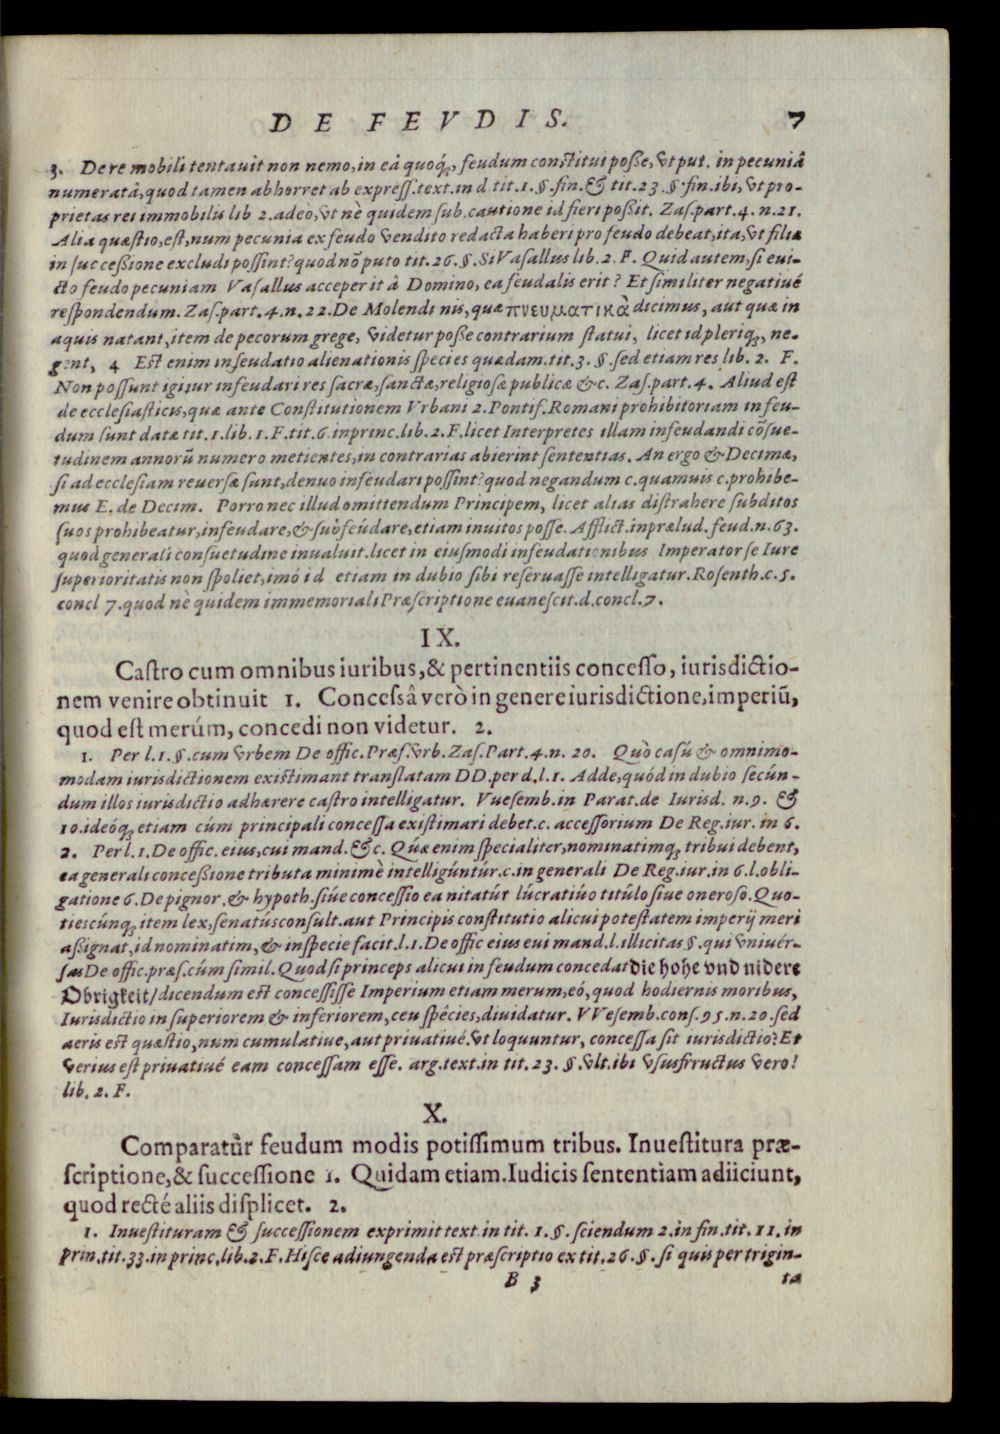 DE FEVDIS. 7
3. De re mobili tentavit non nemo, in eâ quoq́, feudum constitui poße, vt put. in pecuniâ
numeratâ, quod tamen abhorret ab express. text. in d. tit. 1. §. fin. & tit. 23. §. fin. ibi, vt pro-
prietas rei immobilis lib 2. adeò, vt nè quidem sub cautione id fieri poßit. Zas. part. 4. n. 21.
Alia quæstio, est, num pecunia ex feudo vendito redacta haberi pro feudo debeat, ita, vt filiæ
in succeßione excludi possint? quod nõ puto tit. 26. §. Si Vasallus lib. 2. F. Quid autem, si eui-
cto feudo pecuniam Vasallus acceperit â Domino, ea feudalis erit? Et similiter negatiué
respondendum. Zas. part. 4. n. 22. De Molendinis, quæ πνευματικὰ dicimus, aut quæ in
aquis natant, item de pecorum grege, videtur poße contrarium statui, licet id pleriq́, ne-
gent, 4 Est enim infeudatio alienationis species quædam. tit. 3. §. sed etiam res lib. 2. F.
Non possunt igitur infeudari res sacræ, sanctæ, religiosæ publicæ &c. Zas. part. 4. Aliud est
de ecclesiasticis, quæ ante Constitutionem Vrbani 2. Pontif. Romani prohibitoriam in feu-
dum sunt datæ tit. 1. lib. 1. F. tit. 6. in princ. lib. 2. F. licet Interpretes illam infeudandi cõsue-
tudinem annorũ numero metientes, in contrarias abierint sententias. An ergo & Decimæ,
si ad ecclesiam reuersæ sunt, denuo infeudari possint? quod negandum c. quamuis c. prohibe-
mus E. de Decim. Porro nec illud omittendum Principem, licet alias distrahere subditos
suos prohibeatur, infeudare, & subfeudare, etiam inuitos posse. Afflict. in prælud. feud. n. 63.
quod generali consuetudine inualuit. licet in eiusmodi infeudationibus Imperator se Iure
superioritatis non spoliet, imó id etiam in dubio sibi reseruasse intelligatur. Rosenth. c. 5.
concl 7. quod nè quidem immemoriali Præscriptione euanescit. d. concl. 7.
IX.
Castro cum omnibus iuribus, & pertinentiis concesso, iurisdictio-
nem venire obtinuit 1. Concessâ verò in genere iurisdictione, imperiũ,
quod est merúm, concedi non videtur. 2.
1. Per l. 1. §. cum vrbem De offic. Præf. vrb. Zas. Part. 4. n. 20. Quò casú & omnimo-
modam iurisdictionem existimant translatam DD. per d. l. 1. Adde, quód in dubio secún-
dum illos iurisdictio adhærere castro intelligatur. Vuesemb. in Parat. de Iurisd. n. 9. &
10. ideóq́ etiam cúm principali concessa existimari debet. c. accessorium De Reg. iur. in 6.
2. Per l. 1. De offic. eius, cui mand. & c. Qúæ enim specialiter, nominatimq́ tribui debent,
ea generali conceßione tributa minimè intelligúntúr. c. in generali De Reg. iur. in 6. l. obli-
gatione 6. De pignor, & hypoth. siúe concessio ea nitatúr lúcratiúo titúlo siue oneroso. Quo-
tiescúnq́ item lex, senatúsconsult. aut Principis constitutio alicui potestatem imperij meri
aßignat, id nominatim, & in specie facit. l. 1. De offic eius eui mand. l. illicitas §. qui vniuér-
sas De offic. præs. cúm simil. Quod si princeps alicui in feudum concedat die hohe vnd nidere
Obrigkeit/ dicendum est concessisse Imperium etiam merum, eó, quod hodiernis moribus,
Iurisdictio in superiorem & inferiorem, ceu spécies, diuidatur. VVesemb. cons. 95. n. 20. sed
aeris est quæstio, num cumulatiue, aut priuatiué. vt loquuntur, concessa sit iurisdictio? Et
verius est priuatiué eam concessam esse. arg. text. in tit. 23. §. vlt. ibi vsusfructus vero!
lib. 2. F.
X.
Comparatůr feudum modis potissimum tribus. Inuestitura præ-
scriptione, & successione 1. Quidam etiam. Iudicis sententiam adiiciunt,
quod recté aliis displicet. 2.
1. Inuestituram & successionem exprimit text in tit. 1. §. sciendum 2. in fin. tit. 11. in
prin. tit. 33. in princ. lib. 2. F. Hisce adiungenda est præscriptio ex tit. 26. §. si quis per trigin-
B 3 ta